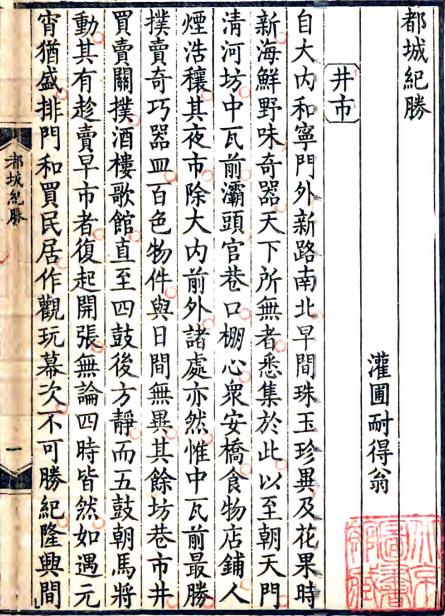 都城紀勝
灌圃耐得翁
井市
自大内和寧門外新路南北早間珠玉珍異及花果時
新海鮮野味奇器天下所無者悉集於此以至朝天門
清河坊中瓦前灞頭官巷口棚心衆安橋食物店鋪人
煙浩穰其夜市除大内前外諸處亦然惟中瓦前最勝
撲賣奇巧器皿百色物件與日間無異其餘坊巷市井
買賣關撲酒樓歌館直至四鼓後方靜而五鼓朝馬將
動其有趂賣早市者復起開張無論四時皆然如遇元
宵猶盛排門和買民居作觀玩幕次不可勝紀隆興間
都城紀勝
一